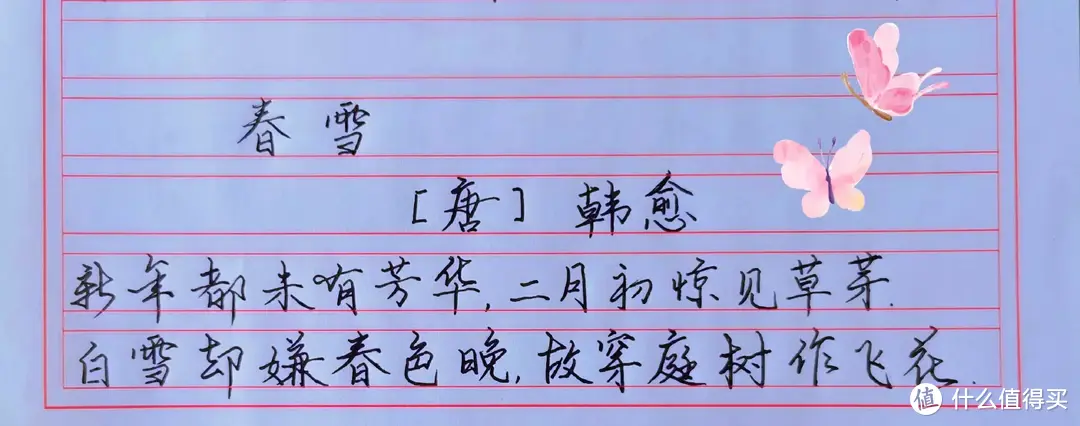 春雪
[唐] 韩愈
新年都未有芳华,二月初惊见草芽.
白雪却嫌春色晚,故穿庭树作飞花.
值 什么值得买